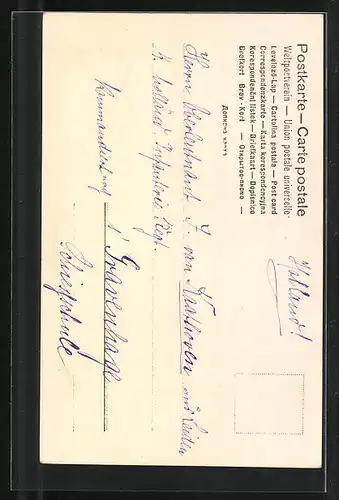 Postkarte — Carte postale
Weltpostverein — Union postale universelle
Levelező-Lap — Cartolina postale — Post card
Correspondenzkarte — Karta korespondencyjna
Korespondenční lístek — Briefkaart — Dopisnica
Brefkort — Brev-Kort — Открытое письмо —
Holland!
Herrn Oberleutnant J. van Kasthoven aus Leiden
k. holländ. Infanterie Rgt.
kommandiert nach
s' Gravenhage